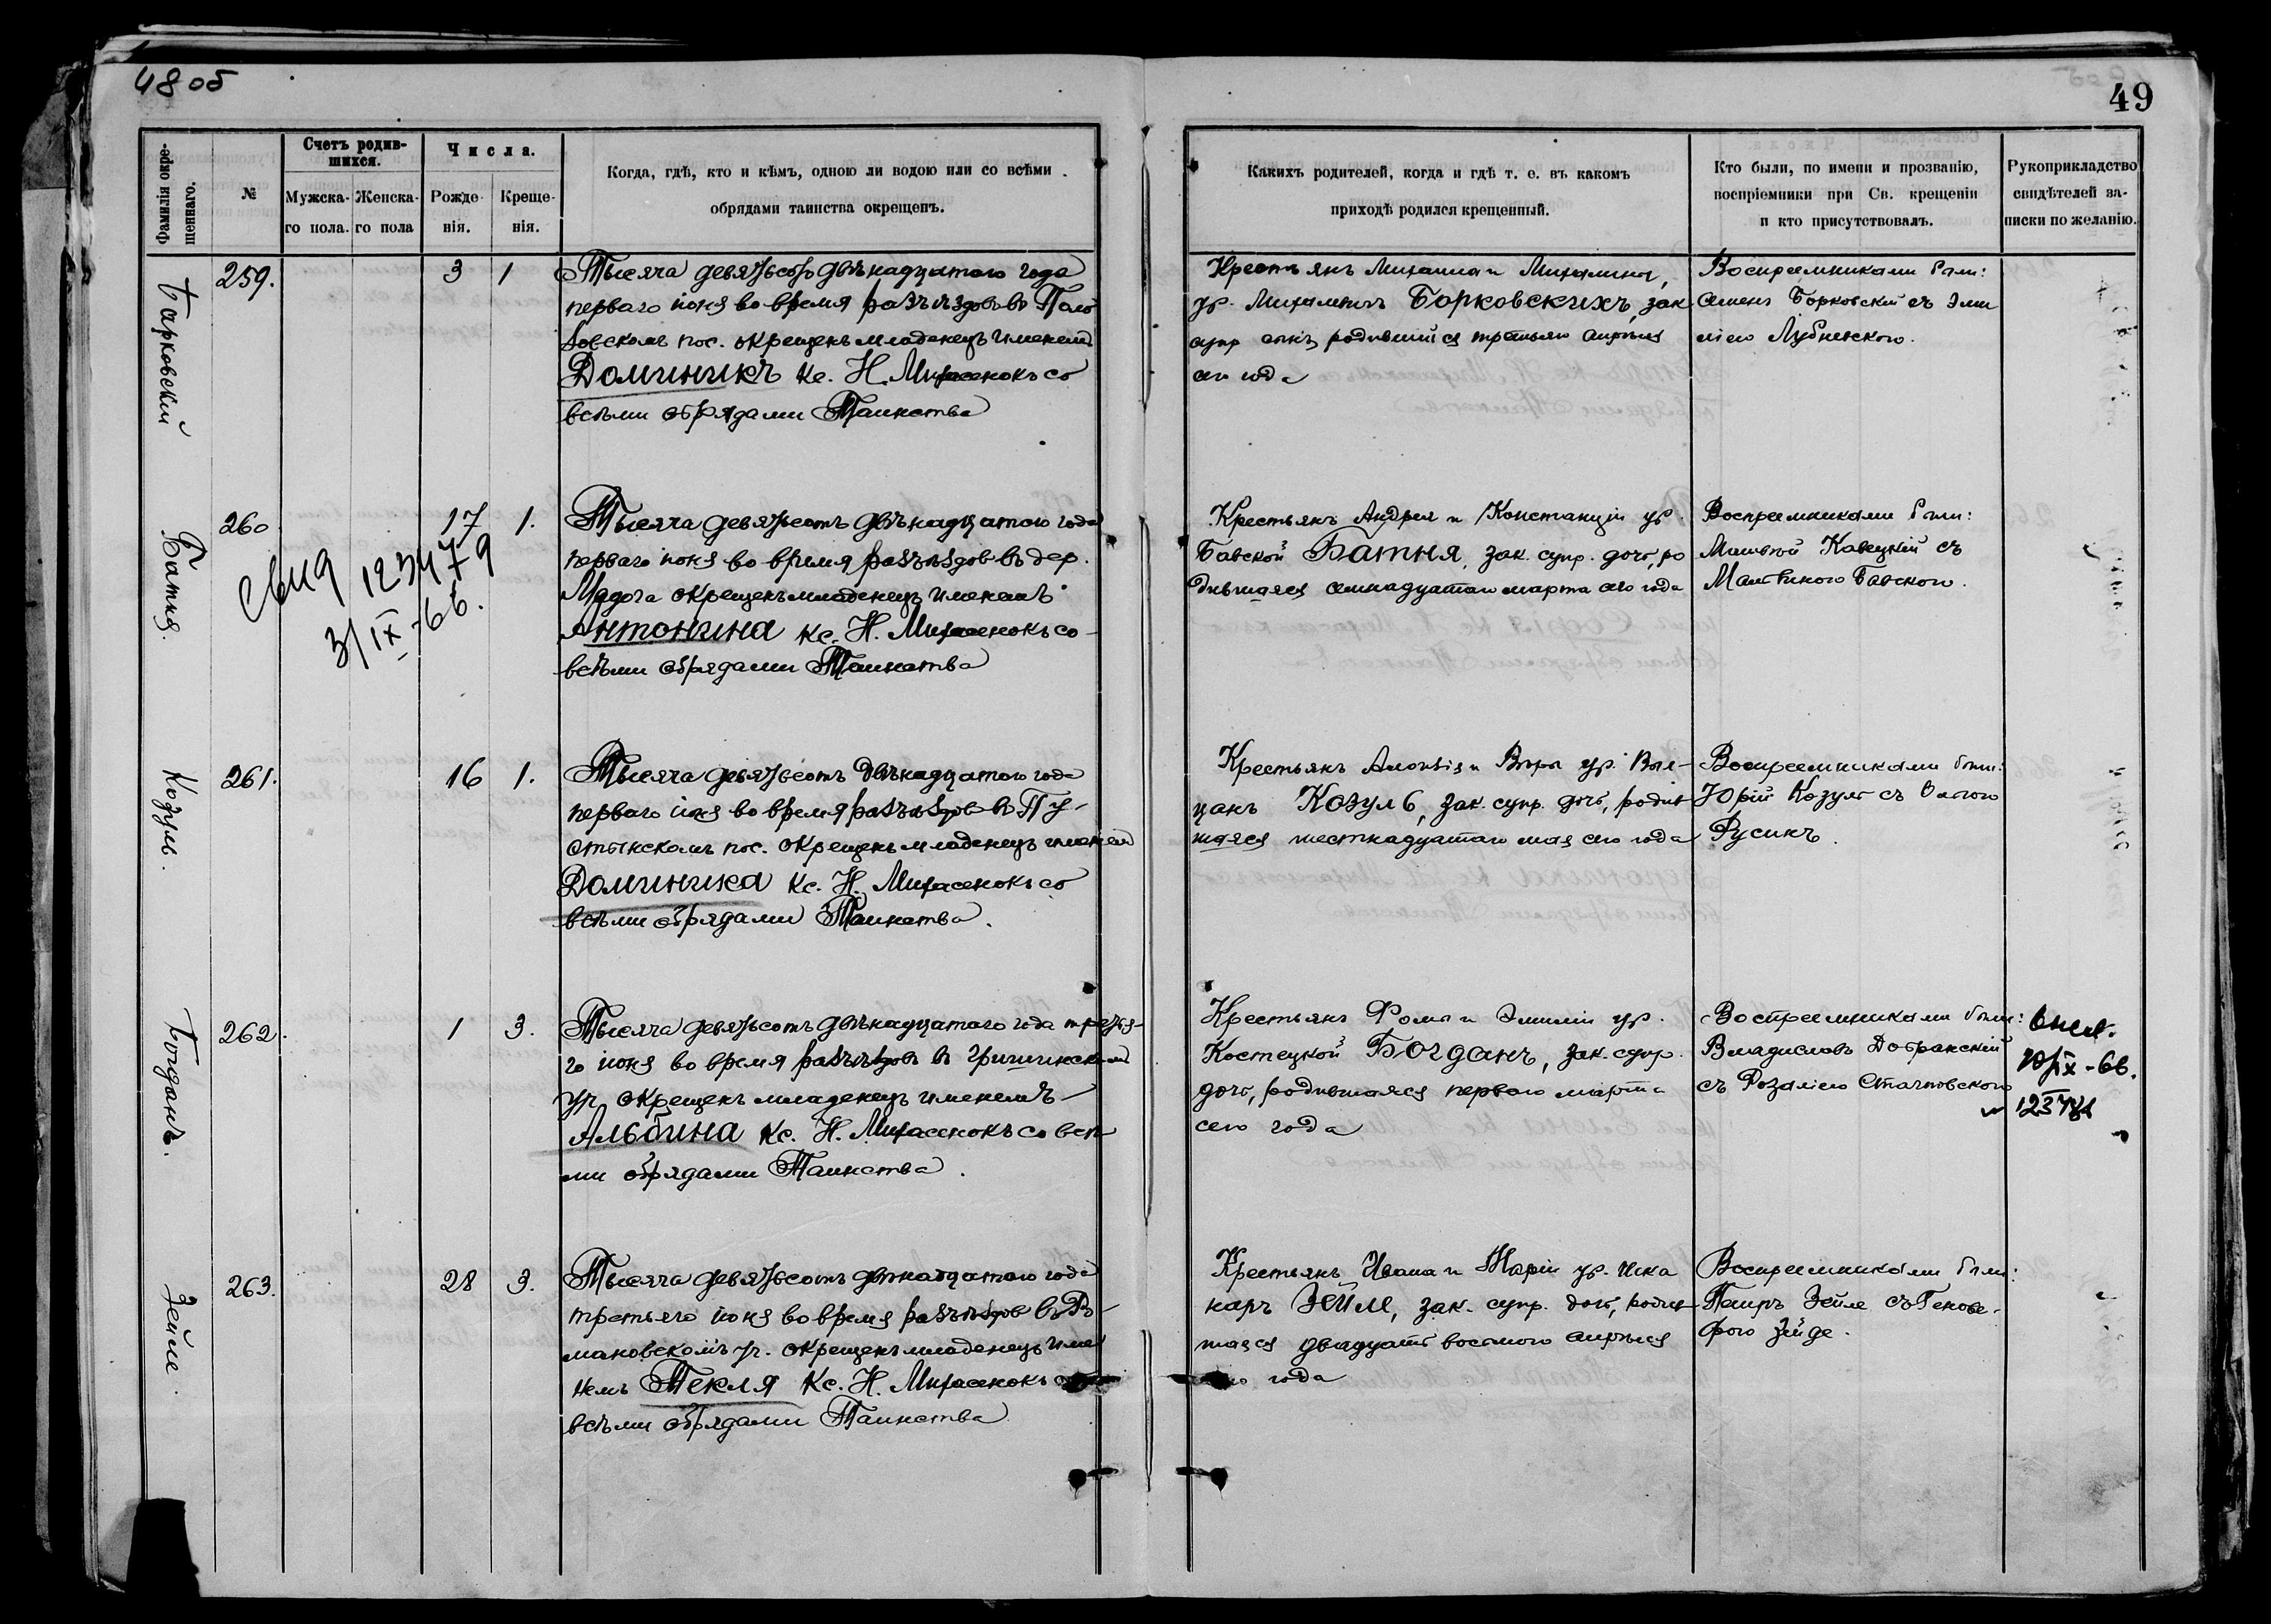 48 об
49
Фамилія окре-
щеннаго.
№
Счетъ родив-
шихся.
Мужска-
го пола.
Женска-
го пола
Числа.
Рожде-
нія.
Креще-
нія.
Когда, гдѣ, кто и кѣмъ, одною ли водою или со всѣми
обрядами таинства окрещенъ.
Какихъ родителей, когда и гдѣ т. е. въ какомъ
приходѣ родился крещенный.
Кто были, по имени и прозванію,
воспріемники при Св. крещеніи
и кто присутствовалъ.
Рукоприкладство
свидѣтелей за-
писки по желанію.
Борковскій
259.
3
1
Тысяча девятьсотъ двѣнадцатого года
перваго іюня во время разъѣздовъ въ
пос. окрещенъ младенецъ именемъ
Доминикъ кс. Н. Михасенокъ со
всѣми обрядами Таинства
Крестьянъ Михаила и Михалины,
ур. Борковскихъ, зак
супр сынъ, родившійся третьяго апрѣля
сего года
Воспреемниками были:
Семенъ Борковскій съ Эми
ліею
Батня.
260
17
1.
свид 123479
3/IX-66.
Тысяча девятьсотъ двѣнадцатого года
перваго іюня во время разъѣздовъ въ дер.
окрещенъ младенецъ именемъ
Антонина кс. Н. Михасенокъ со
всѣми обрядами Таинства
Крестьянъ Андрея и Констанціи ур.
Бавской Батня, зак. супр. дочь, ро
дившаяся семнадцатаго марта сего года
Воспреемниками были:
Матвѣй Кавецкій съ
Бавскою.
Козулъ.
261.
16
1.
Тысяча девятьсотъ двѣнадцатого года
перваго іюня во время разъѣздовъ въ Пу-
стынскомъ пос. окрещенъ младенецъ именемъ
Доминика кс. Н. Михасенокъ со
всѣми обрядами Таинства.
Крестьянъ Алоизія и Вѣры ур.
Козулъ, зак. супр. дочь, родив
шаяся шестнадцатаго мая сего года
Воспреемниками были:
Юрій Козулъ съ
Русинъ.
Богданъ.
262.
1
3.
Тысяча девятьсотъ двѣнадцатаго года третья-
го іюня во время разъѣздовъ въ Гришинскомъ
уч. окрещенъ младенецъ именемъ
Альбина кс. Н. Михасенокъ со всѣ
ми обрядами Таинства.
Крестьянъ Фома и Эмиліи ур.
Костецкой Богданъ, зак. супр.
дочь, родившаяся перваго марта
сего года
Воспреемниками были:
Владиславъ Добранскій
съ Розаліею
10/IX-66.
Зейле.
263.
28
3.
Тысяча девятьсотъ двѣнадцатого года
третьяго іюня во время разъѣздовъ въ Ро-
мановскомъ уч. окрещенъ младенецъ име
немъ Текля кс. Н. Михасенокъ
всѣми обрядами Таинства
Крестьянъ Ивана и Маріи ур.
Зейле, зак. супр. дочь, родив
шаяся двадцать восьмого апрѣля
года
Воспреемниками были:
Петръ Зейле съ Геновефою
Зейде.